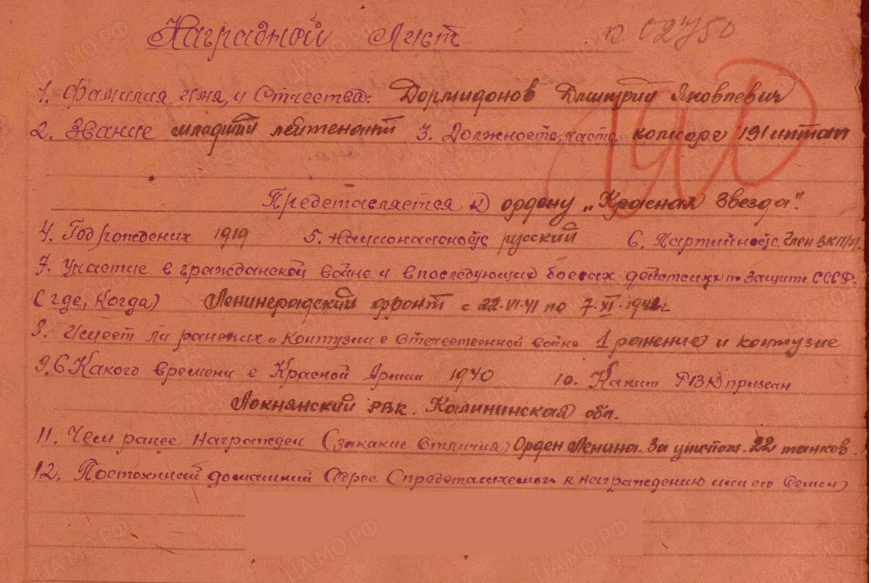 Наградной Лист
п 02750
1. Фамилия имя и Отчества: Дормидонов Дмитрий Яковлевич
2. Звание младший лейтенант 3. Должность, часть комсорг 191 иптап
Представляется к ордену „Красная Звезда".
4. Год рождених 1919 5. Национасность русский 6. Партийность Член ВКП/б/.
7. Участие в гражданской войне и в последующих боевых действих по защите СССР.
(где, Когда) Ленинградский фронт с 22.VI.41 по 7.XI.194 г
8. Имеет ли ранених и Контузии в Отечественной войне 1 ранение и контузие
9. С Какого времени в Красной Армии 1940 10. Каким РВК призван
Локнянский РВК. Калининская обл.
11. Чем ранее Награжден (за какие Отличия) Орден Ленина. За уничтож. 22 танков.
12. Постохнный домашний Адрес Представляемого к награждению или его Семьи)
ЦА МО РФ